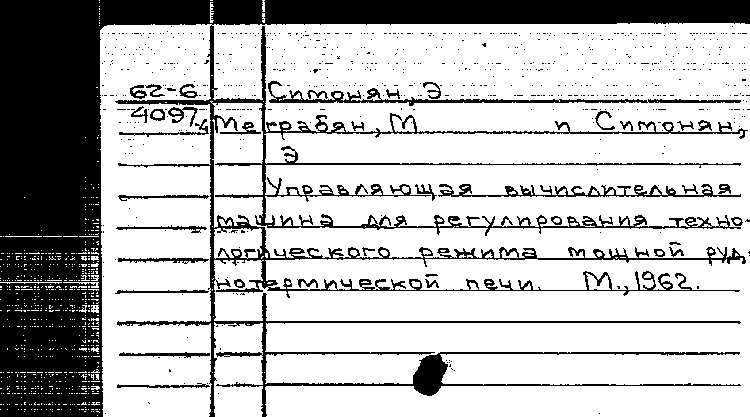 62-6 Симонян, Э
4097/4 Меграбян, М и Симонян,
Э
Управляющая вычислительная
машина для регулирования техно-
логического режима мощной руд-
нотермической печи. М., 1962.